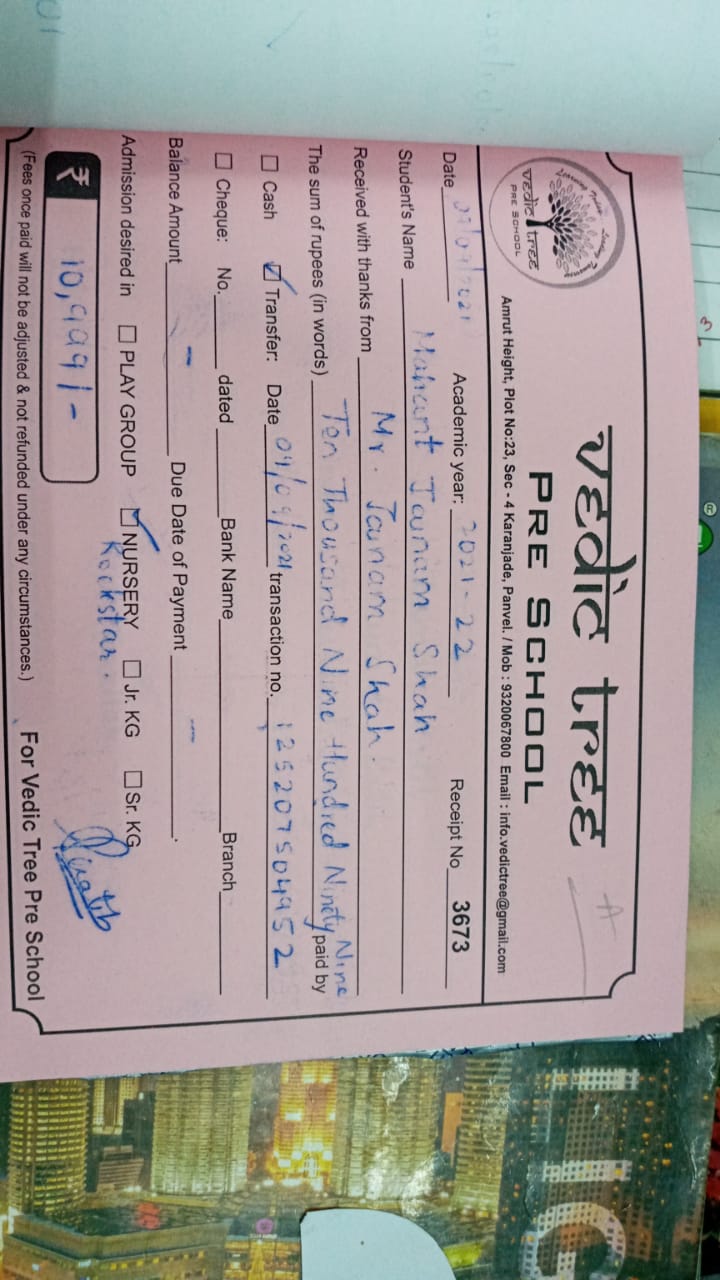 vedic tree
PRE SCHOOL
vedic tree
PRE SCHOOL
Amrut Height, Plot No:23, Sec - 4 Karanjade, Panvel. / Mob : 9320067800 Email : info.vedictree@gmail.com
Date Academic year: 2021-22 Receipt No 3673
Student's Name Mahant Jainam Shah
Received with thanks from Mr. Jainam Shah.
The sum of rupees (in words) Ten Thousand Nine Hundred Ninety Nine paid by
Cash Transfer: Date 09/09/2021 transaction no. 125207504952
Cheque: No. dated Bank Name Branch
Balance Amount - Due Date of Payment -
Admission desired in PLAY GROUP NURSERY Jr. KG Sr. KG
Rockstar.
₹ 10,999/-
(Fees once paid will not be adjusted & not refunded under any circumstances.) For Vedic Tree Pre School